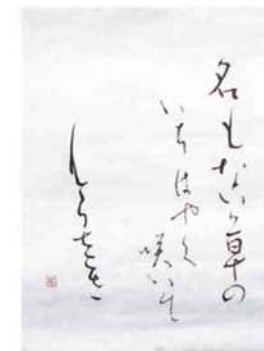 名もない草の
いちはやく咲いて
むらさき